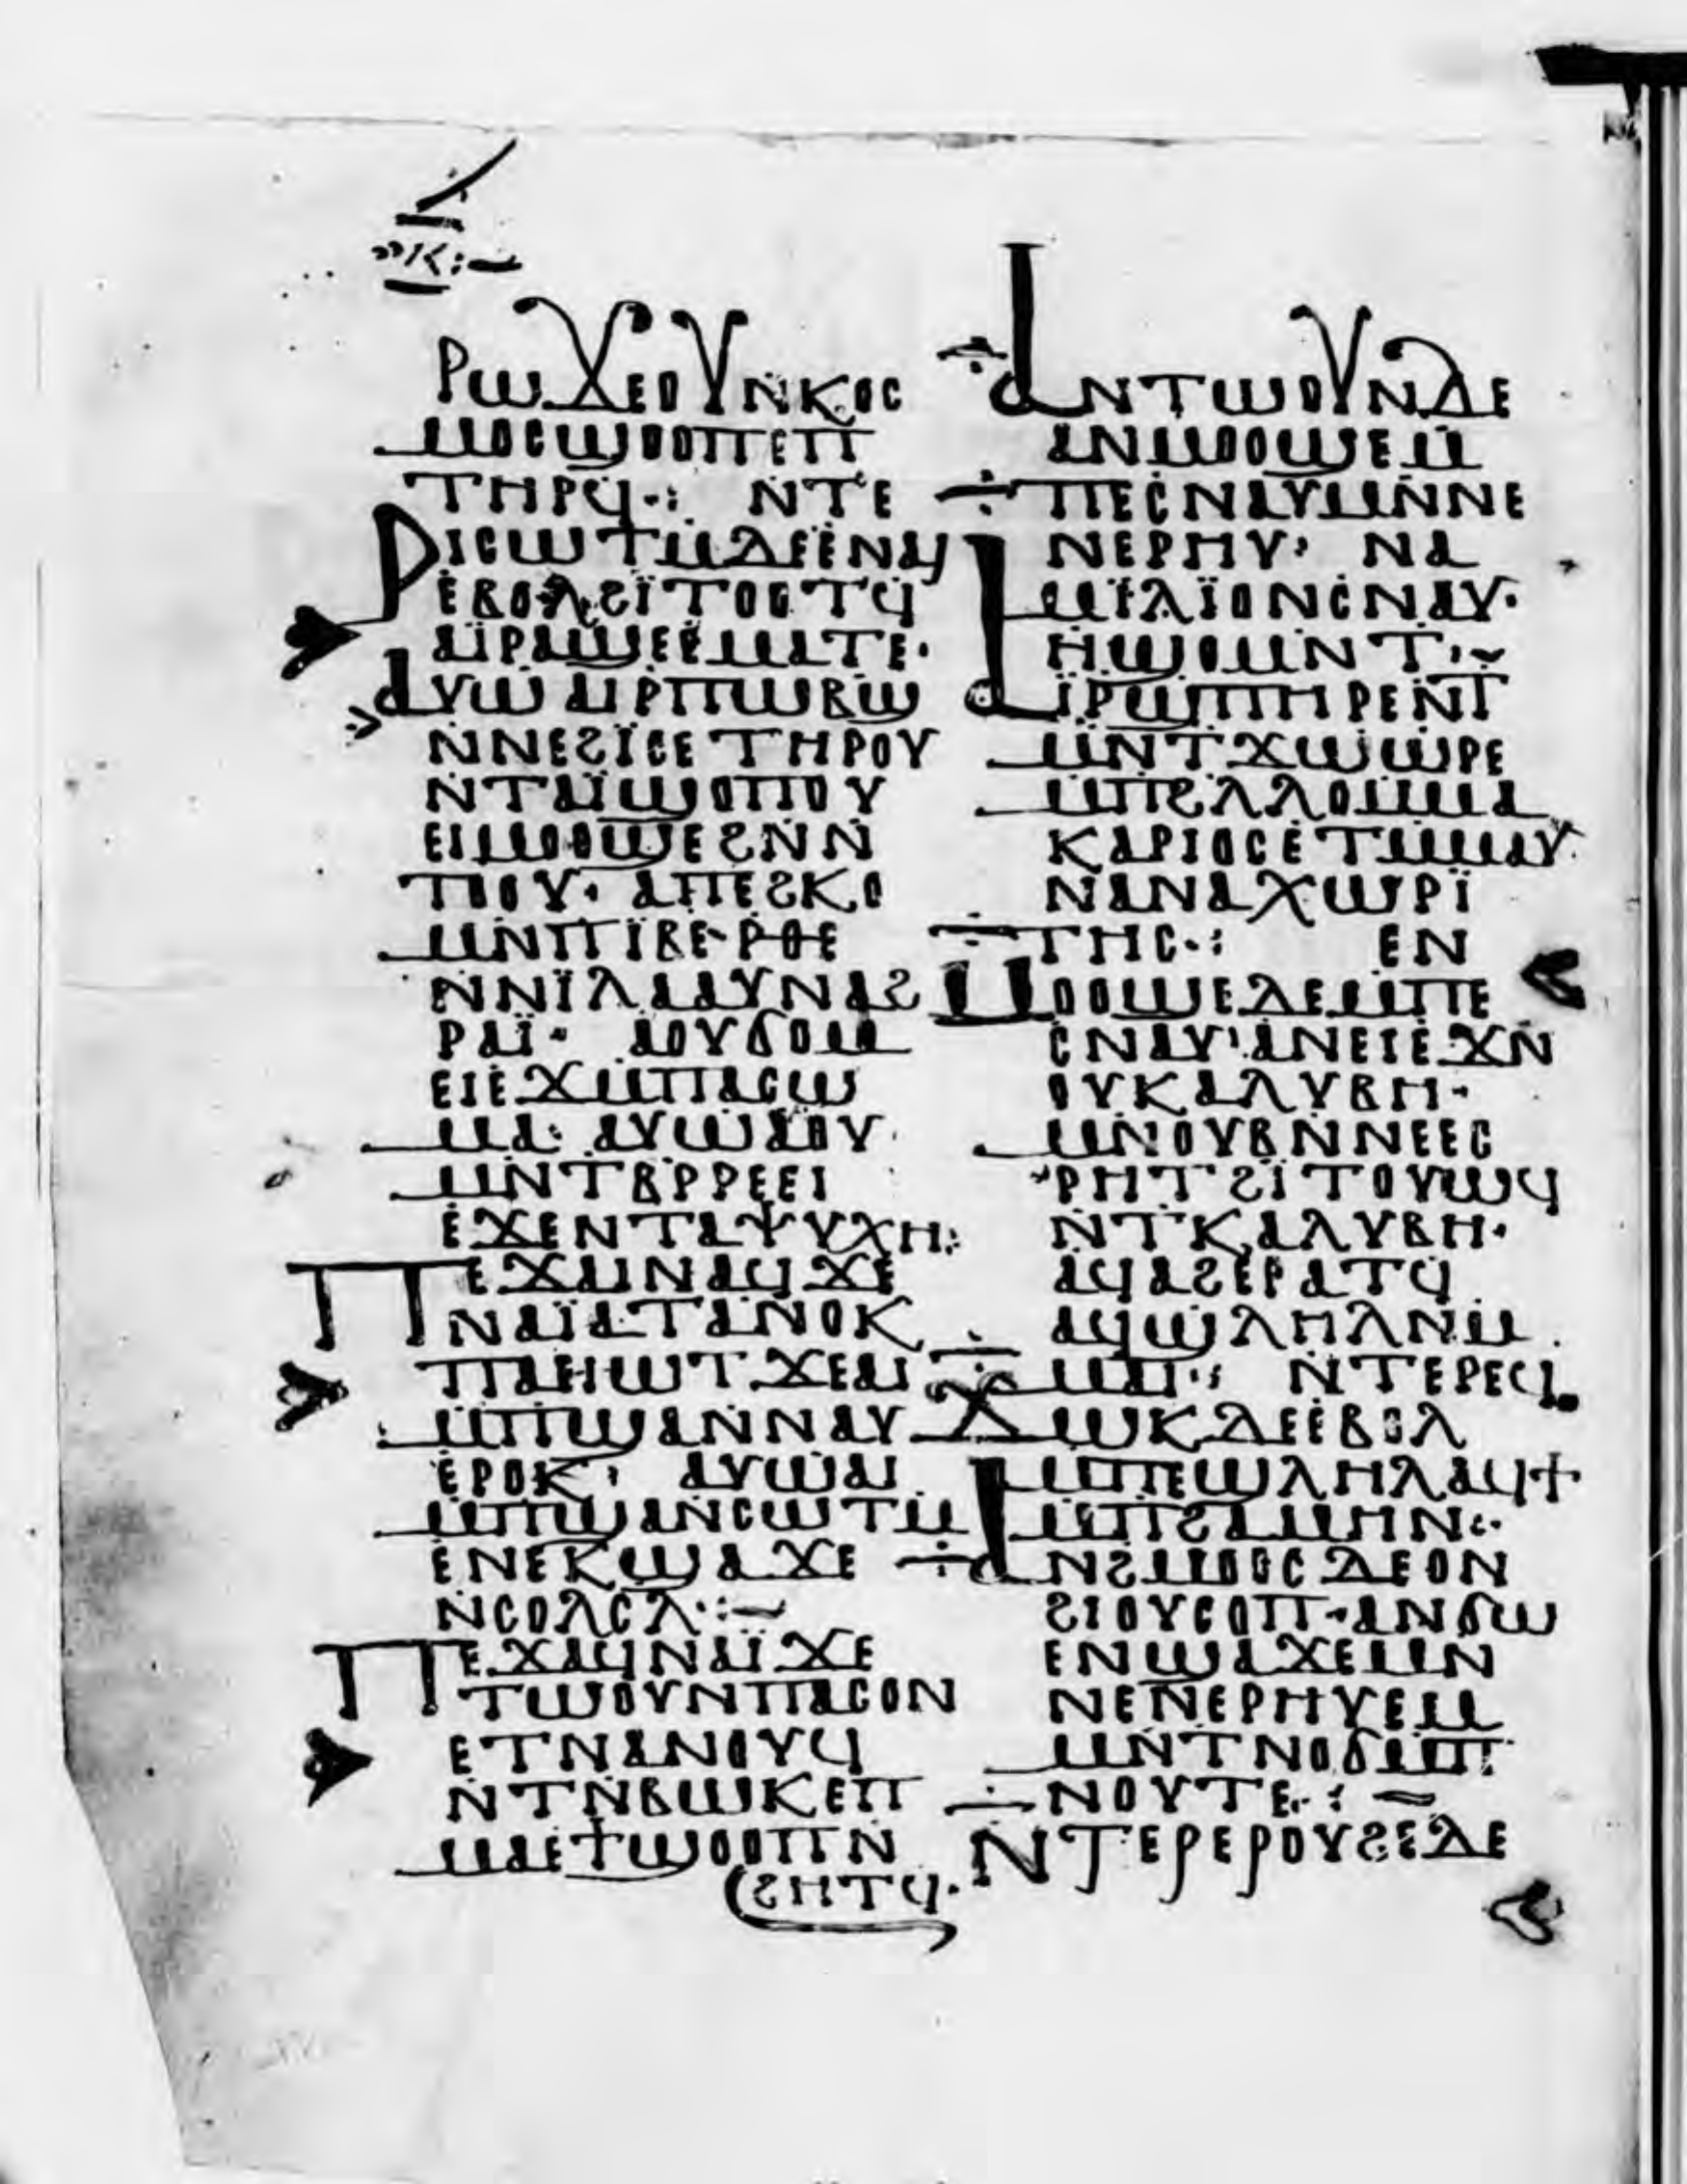 ⲕ
ⲣⲱϫⲉⲟⲩⲛⲕⲟⲥ
ⲙⲟⲥϣⲟⲟⲡϩⲙⲡ
ⲧⲏⲣϥ·: ⲛⲧⲉ
ⲣⲓⲥⲱⲧⲙⲇⲉⲉⲛⲁⲓ̈
ⲉⲃⲟⲗϩⲓ̈ⲧⲟⲟⲧϥ
ⲁⲓ̈ⲣⲁϣⲉⲉⲙⲁⲧⲉ·
ⲁⲩⲱ ⲁⲓⲣⲡⲱⲃϣ
ⲛⲛⲉϩⲓ̈ⲥⲉ ⲧⲏⲣⲟⲩ
ⲛⲧⲁⲓ̈ϣⲟⲡⲟⲩ
ⲉⲓⲙⲟⲟϣⲉϩⲛⲛ
ⲧⲟⲟⲩ· ⲁⲡⲉϩⲕⲟ
ⲙⲛⲡⲓ̈ⲃⲉ ⲣⲑⲉ
ⲛⲛⲓ̈ⲗⲁⲁⲩⲛⲁϩ
ⲣⲁⲓ̈· ⲁⲟⲩϭⲟⲙ
ⲉⲓⲉϫⲙⲡⲁⲥⲱ
ⲙⲁ· ⲁⲩⲱⲁⲟⲩ
ⲙⲛⲧⲃⲣⲣⲉⲉⲓ
ⲉϫⲉⲛⲧⲁⲯⲩⲭⲏ:
ⲡⲉϫⲁⲓⲛⲁϥϫⲉ
ⲛⲁⲓ̈ⲁⲧⲁⲛⲟⲕ
ⲡⲁⲉⲓⲱⲧ ϫⲉⲁⲓ
ⲙⲡϣⲁⲛⲛⲁⲩ
ⲉⲣⲟⲕ· ⲁⲩⲱⲁⲓ
ⲙⲡϣⲁⲛⲥⲱⲧⲙ
ⲉⲛⲉⲕϣⲁϫⲉ
ⲛⲥⲟⲗⲥⲗ·:
ⲡⲉϫⲁϥⲛⲁⲓ̈ϫⲉ
ⲧⲱⲟⲩⲛⲡⲁⲥⲟⲛ
ⲉⲧⲛⲁⲛⲟⲩϥ
ⲛⲧⲛⲃⲱⲕⲉⲡ
ⲙⲁⲉϯϣⲟⲟⲡⲛ
ϩⲏⲧϥ·
ⲁⲛⲧⲱⲟⲩⲛⲇⲉ
ⲁⲛⲙⲟⲟϣⲉⲙ
ⲡⲉⲥⲛⲁⲩⲙⲛⲛⲉ
ⲛⲉⲣⲏⲩ· ⲛⲁ
ⲙⲓ̈ⲗⲓ̈ⲟⲛⲥⲛⲁⲩ·
ⲏϣⲟⲙⲛⲧ·
ⲁⲓ̈ⲣϣⲡⲏⲣⲉⲛⲧ
ⲙⲛⲧϫⲱⲱⲣⲉ
ⲙⲡϩⲗⲗⲟⲙⲙⲁ
ⲕⲁⲣⲓⲟⲥⲉⲧⲙⲙⲁⲩ
ⲛⲁⲛⲁⲭⲱⲣⲓ̈
ⲧⲏⲥ·: ⲉⲛ
ⲙⲟⲟϣⲉⲇⲉⲙⲡⲉ
ⲥⲛⲁⲩ ⲁⲛⲉⲓⲉϫⲛ
ⲟⲩⲕⲁⲗⲩⲃⲏ·
ⲙⲛⲟⲩⲃⲛⲛⲉⲉⲥ
ⲣⲏⲧϩⲓ̈ⲧⲟⲩⲱϥ
ⲛⲧⲕⲁⲗⲩⲃⲏ·
ⲁϥⲁϩⲉⲣⲁⲧϥ
ⲁϥϣⲗⲏⲗⲁⲛⲙ
ⲙⲁⲓ·: ⲛⲧⲉⲣⲉϥ
ϫⲱⲕⲇⲉⲉⲃⲟⲗ
ⲙⲡⲉϣⲗⲏⲗⲁϥϯ
ⲙⲡϩⲁⲙⲏⲛ·
ⲁⲛϩⲙⲟⲟⲥ ⲇⲉⲟⲛ
ϩⲓⲟⲩⲥⲟⲡ·ⲁⲛϭⲱ
ⲉⲛϣⲁϫⲉⲙⲛ
ⲛⲉⲛⲉⲣⲏⲩⲉⲙ
ⲙⲛⲧⲛⲟϭⲙⲡ
ⲛⲟⲩⲧⲉ·:
ⲛⲧⲉⲣⲉⲣⲟⲩϩⲉⲇⲉ